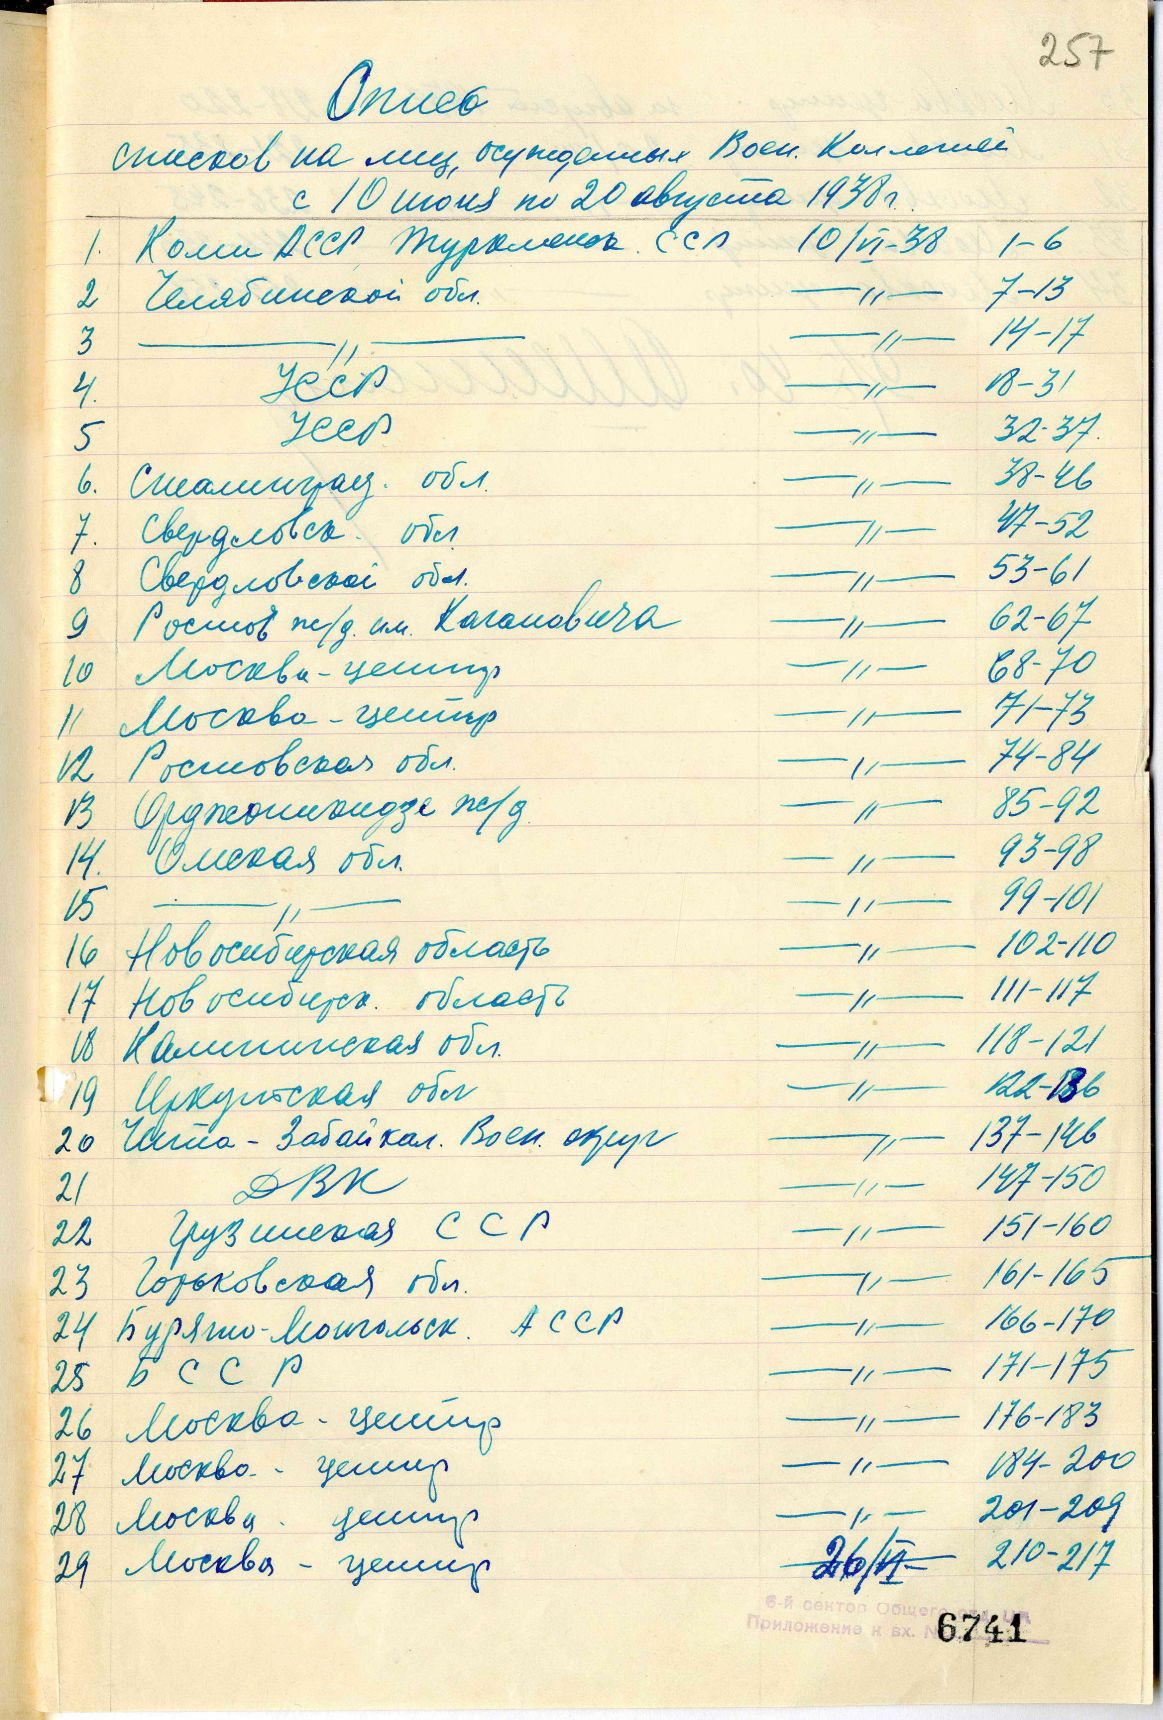 257
Опись
списков на лиц, осужденных Воен. Коллегией
с 10 июня по 20 августа 1938 г.
1. Коми АССР, Туркменск. ССР 10/VI-38 1-6
2 Челябинской обл. —"— 7-13
3 —"— —"— 14-17
4. УССР —"— 18-31
5 УССР —"— 32-37.
6. Сталинград. обл. —"— 38-46
7. Свердловск. обл —"— 47-52
8 Свердловской обл. —"— 53-61
9 Ростов ж/д. им. Кагановича —"— 62-67
10 Москва-центр —"— 68-70
11 Москва-центр —"— 71-73
12 Ростовская обл. —"— 74-84
13 Орджоникидзе ж/д. " — 85-92
14. Омская обл. —"— 93-98
15 —"— —"— 99-101
16 Новосибирская область —"— 102-110
17 Новосибирск. область —"— 111-117
18 Калининская обл. —"— 118-121
19 Иркутская обл —"— 122-136
20 Чита - Забайкал. Воен. округ —"— 137-146
21 ДВК —"— 147-150
22 Грузинская ССР —"— 151-160
23 Горьковская обл. —"— 161-165
24 Бурято-Монгольск. АССР —"— 166-170
25 БССР —"— 171-175
26 Москва - центр —"— 176-183
27 Москва - центр —"— 184-200
28 Москва - центр —"— 201-209
29 Москва - центр 26/VI 210-217
6-й сектор Общего отд. ЦК
Приложение к вх. №
6741